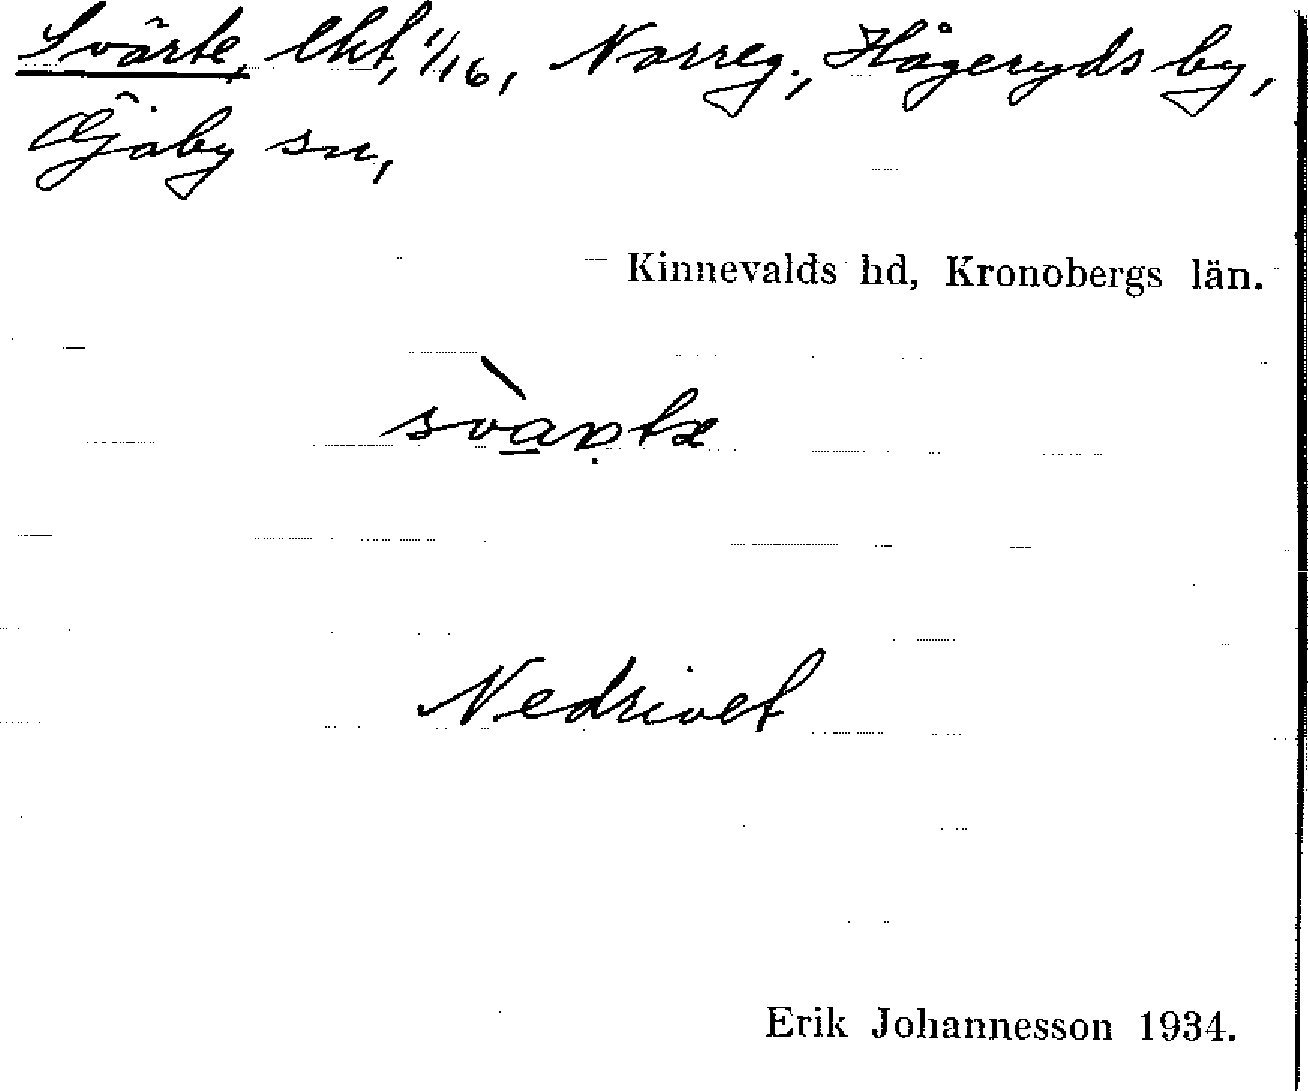 Svärte, lht, 1/16, Norreg., Hågeryds by,
Öjaby sn,
Kinnevalds hd, Kronobergs län.
Nedrivet
Erik Johannesson 1934.